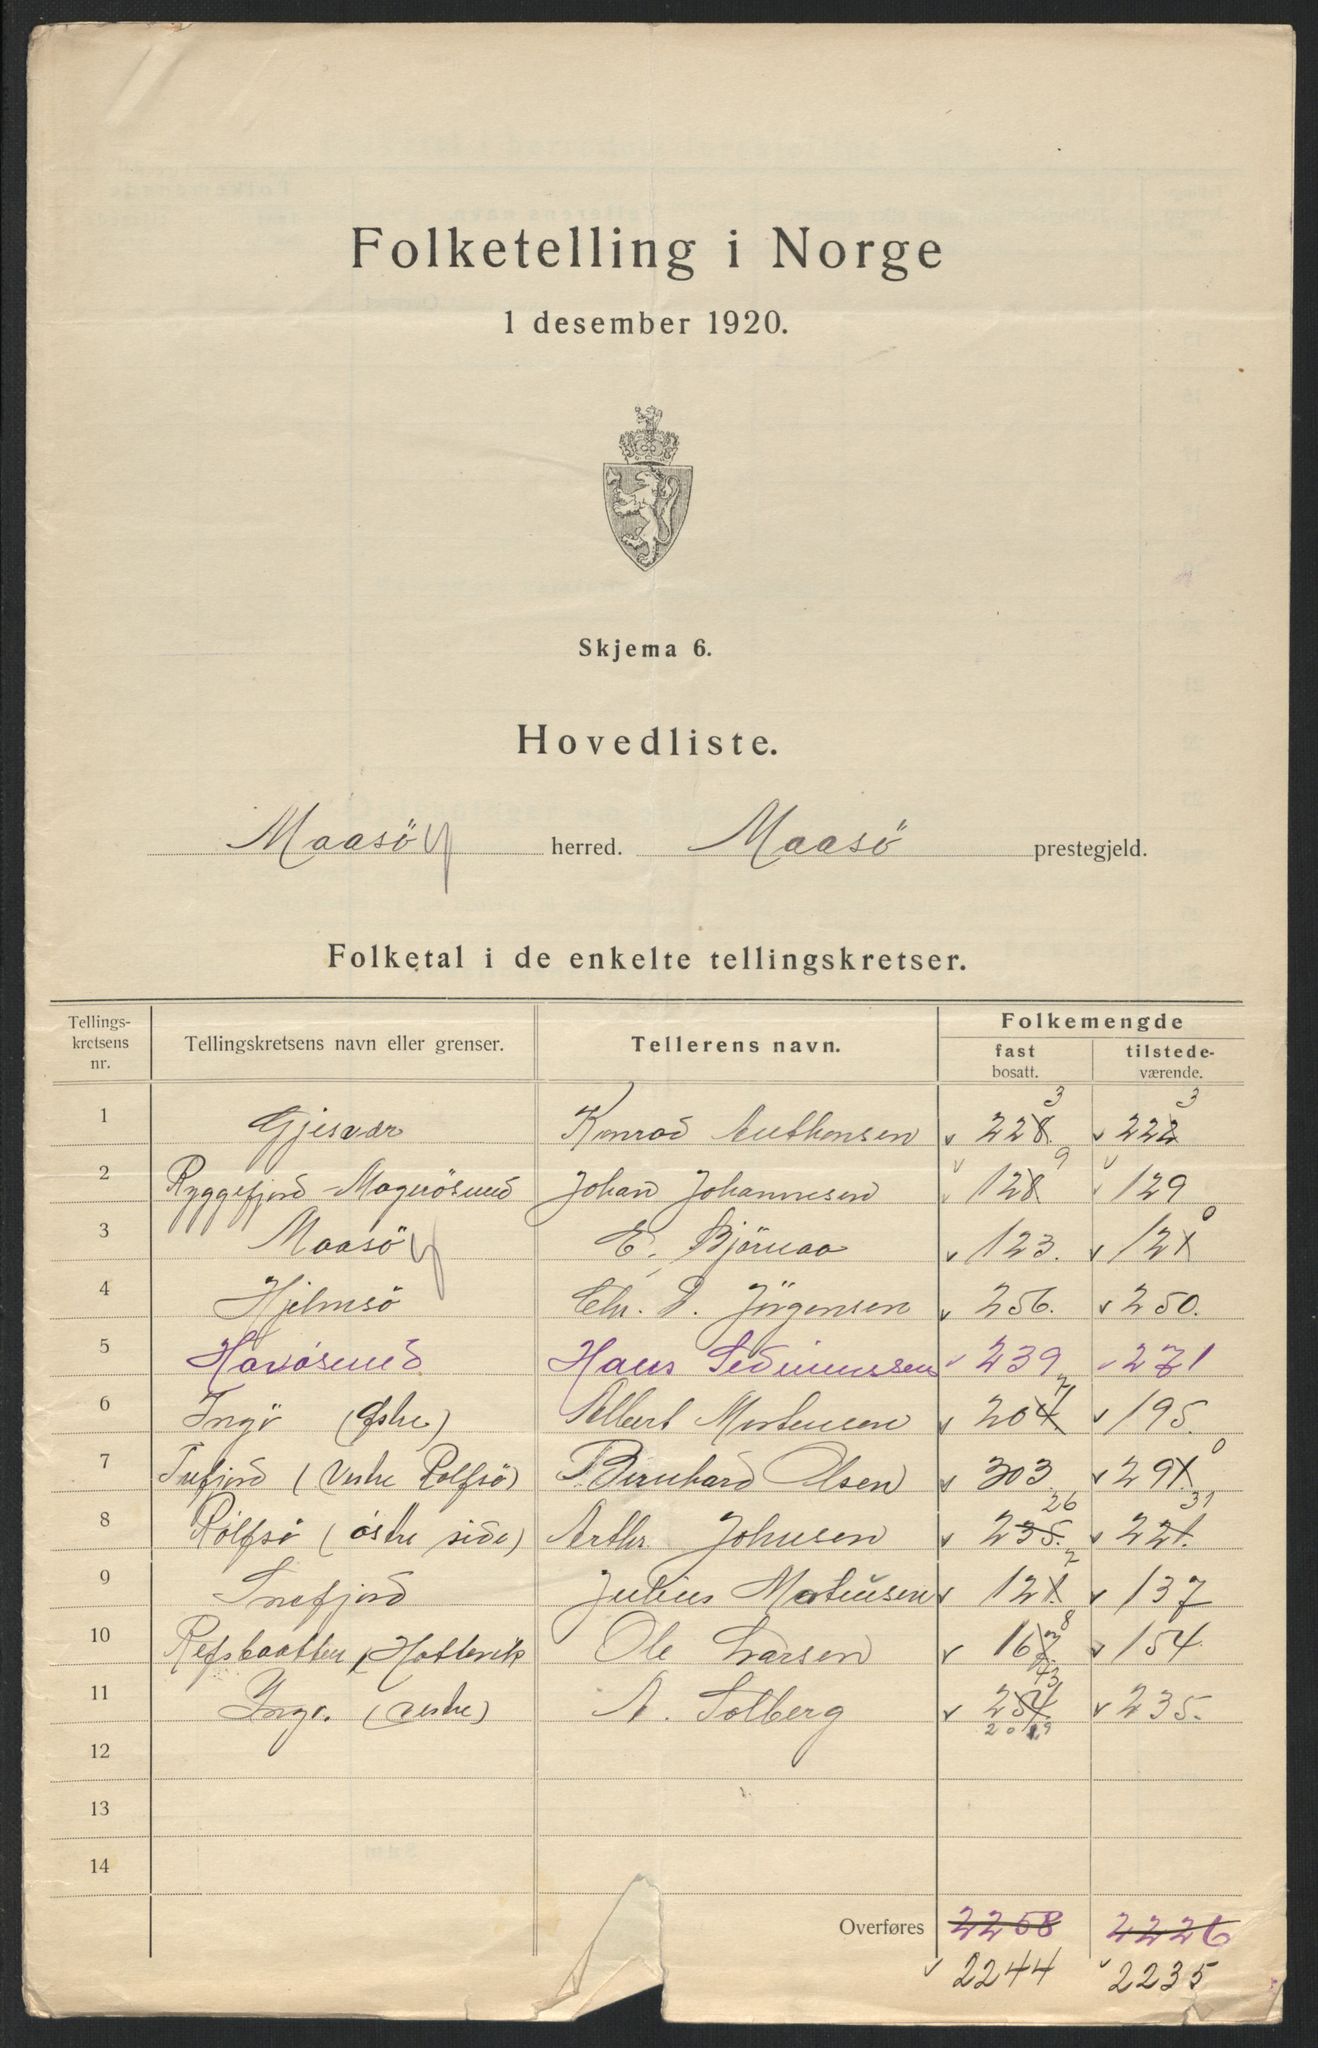 Folketelling i Norge
1 desember 1920.
Skjema 6.
Hovedliste.
Maasöy herred. Maasö prestegjeld.
Folketal i de enkelte tellingskretser.
Tellings-kretsens nr. Tellingskretsens navn eller grenser. Tellerens navn. Folkemengde
fast bosatt. tilstede-værende.
1 Gjesvær Konrad Anthonsen 228 3 222 3
2 Ryggefjord - Magerösund Johan Johannesen 128 9 129
3 Maasöy E. Björnaa 123. 121 0
4 Hjelmsö Chr. D. Jörgensen 256. 250.
5 Havösund Hans 239 271
6 Ingö (østre) Albert Mortensen 204 2 195.
7 Tufjord (vestre Rolfsö) Bernhard Olsen 303 291. 0
8 Rolfsö (östre side) Arthr. Johnsen 235. 26 221. 31
9 Snefjord Julius Mortensen 121. 2 137
10 Refsbaatten, Hatterik Ole Larsen 167 8 154.
11 Ingö. (vestre) A. Solberg 254. 43 235.
12
13
14
Overføres 2258 2226
2244 2235